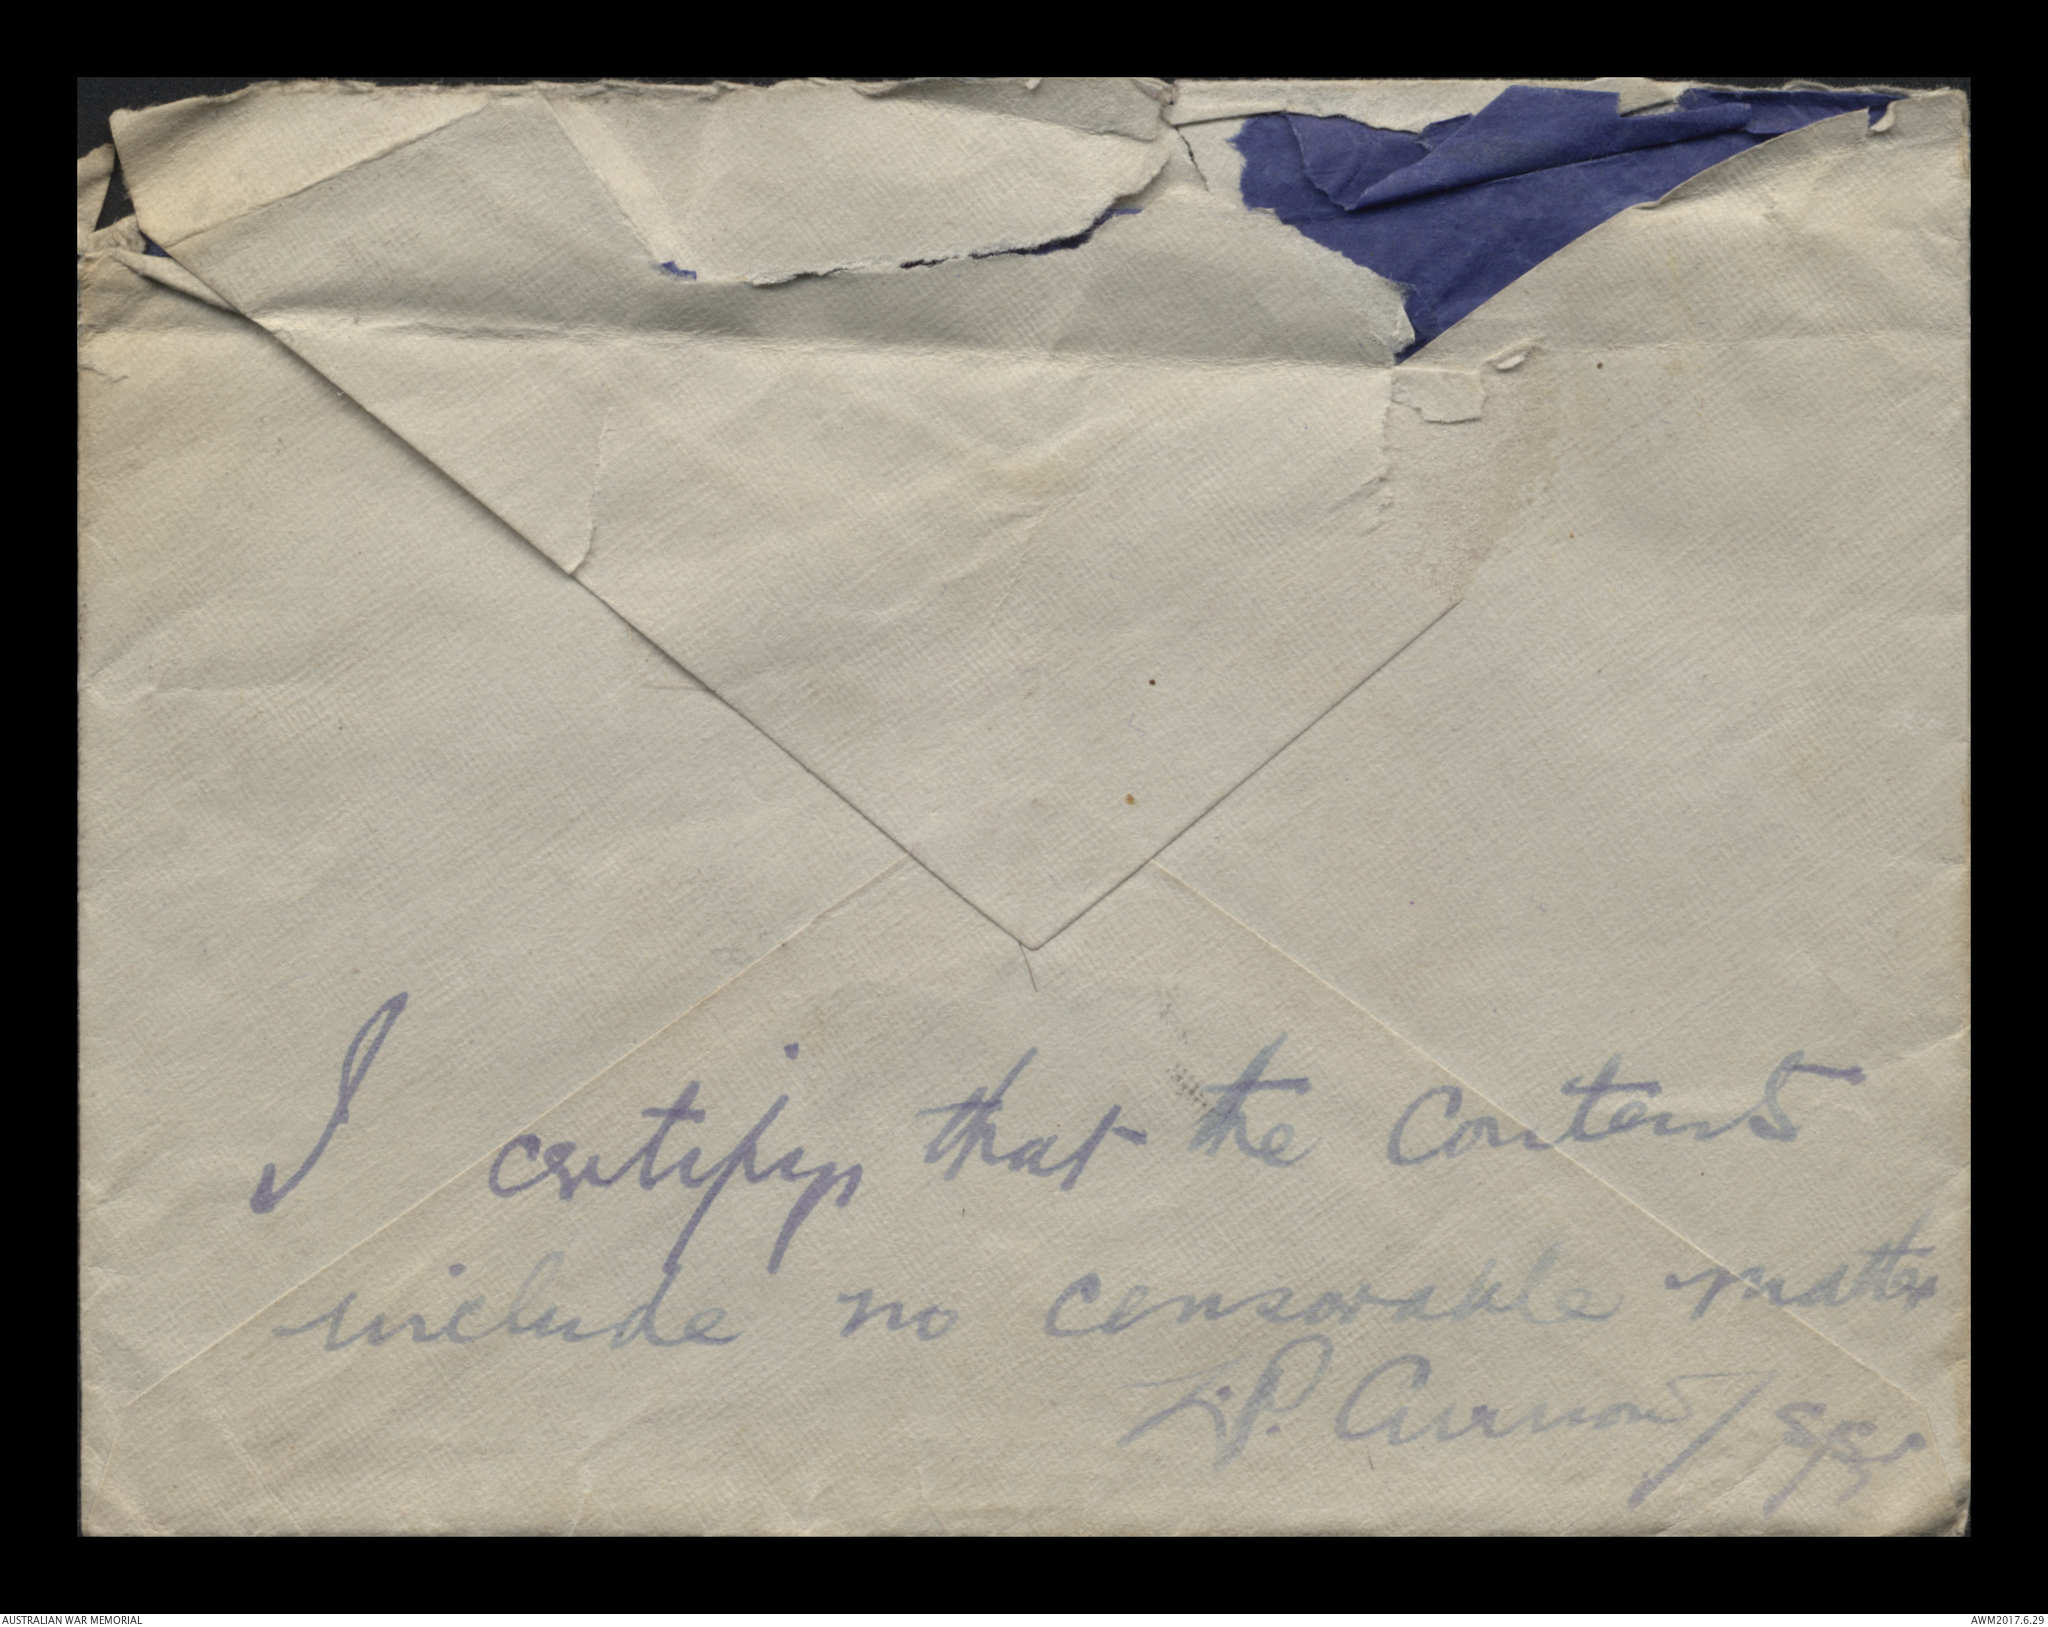 I certify that the Contents
include no censorable matter
AUSTRALIAN WAR MEMORIAL
AWM2017.6.29